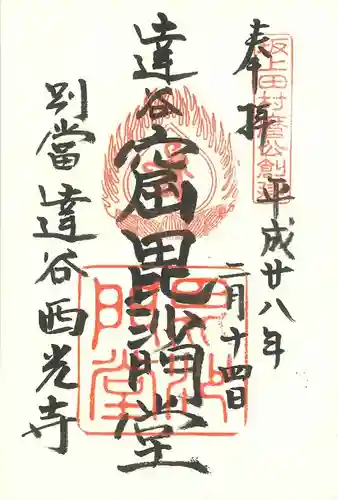 奉拝
坂上田村麿公創建
平成廿八年
二月十四日
達谷窟毘沙門堂
毘沙門堂
別當達谷西光寺